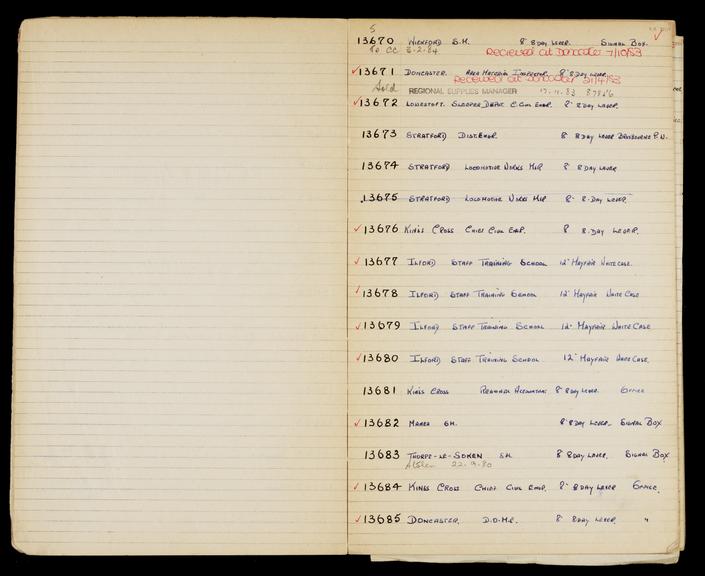 5
13670 WICKFORD S.M. 8" 8 DAY LEVER. SIGNAL BOX.
To CC 3-2-84 RECIEVED AT DONCASTER 7/10/83
✓13671 DONCASTER. AREA MATERIAL INSPECTOR. 8" 8 DAY LEVER
RECIEVED AT DONCASTER
Sold REGIONAL SUPPLIES MANAGER
✓13672 LOWESTOFT. SLEEPER DEPOT C. CIVIL ENGR. 8" 8 DAY LEVER.
13673 STRATFORD DIST. ENGR. 8" 8 DAY LEVER BROXBOURNE P.W.
13674 STRATFORD LOCOMOTIVE WORKS MGR 8" 8 DAY LEVER
13675 STRATFORD LOCOMOTIVE WORKS MGR 8" 8-DAY LEVER.
✓13676 KINGS CROSS CHIEF CIVIL ENGR. 8" 8-DAY LEVER.
✓13677 ILFORD STAFF TRAINING SCHOOL 12" MAYFAIR WHITE CASE.
✓13678 ILFORD STAFF TRAINING SCHOOL 12" MAYFAIR WHITE CASE
✓13679 ILFORD STAFF TRAINING SCHOOL 12" MAYFAIR WHITE CASE
✓13680 ILFORD STAFF TRAINING SCHOOL. 12" MAYFAIR WHITE CASE.
13681 KINGS CROSS REGIONAL ACCOUNTANT 8" 8 DAY LEVER. OFFICE
✓13682 MARCH SM. 8" 8 DAY LEVER. SIGNAL BOX
13683 THORPE-LE-SOKEN S.M. 8" 8 DAY LEVER. SIGNAL BOX
Stolen 22-9-80
✓13684 KINGS CROSS CHIEF CIVIL ENGR. 8" 8 DAY LEVER OFFICE.
✓13685 DONCASTER. D.O.M.R. 8" 8 DAY LEVER. "